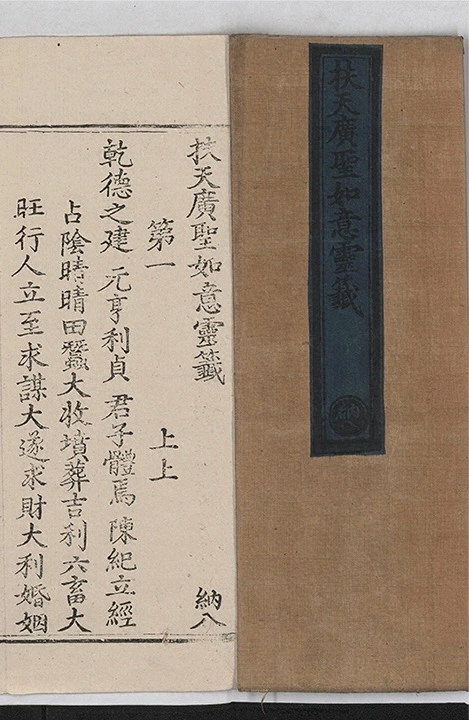 扶天廣聖如意靈籤
納
扶天廣聖如意靈籤
納八
第一
上上
乾德之建 元亨利貞 君子體焉 陳紀立經
占陰晴晴田蠶大收墳葬吉利六畜大
旺行人立至求謀大遂求財大利婚姻